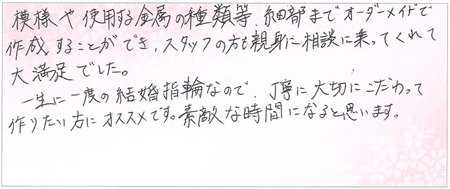 模様や使用する金属の種類等、細部までオーダーメイドで
作成することができ、スタッフの方も親身に相談に乗ってくれて
大満足でした。
一生に一度の結婚指輪なので、丁寧に大切にこだわって
作りたい方にオススメです。素敵な時間になると思います。